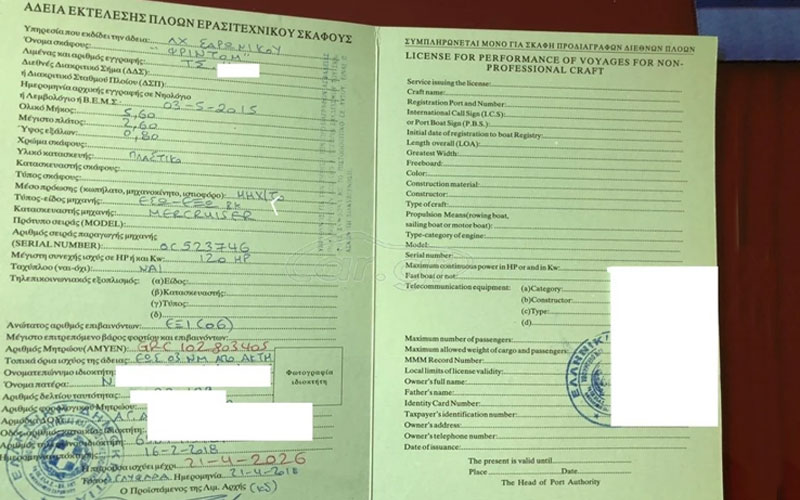 ΑΔΕΙΑ ΕΚΤΕΛΕΣΗΣ ΠΛΟΩΝ ΕΡΑΣΙΤΕΧΝΙΚΟΥ ΣΚΑΦΟΥΣ
Υπηρεσία που εκδίδει την άδεια: ΛΧ ΣΑΡΩΝΙΚΟΥ
Όνομα σκάφους: "ΦΡΙΝΤΟΜ"
Λιμένας και αριθμός εγγραφής: Τ.Σ.
Διεθνές Διακριτικό Σήμα (ΔΔΣ):
ή Διακριτικό Σταθμού Πλοίου (ΔΣΠ):
Ημερομηνία αρχικής εγγραφής σε Νηολόγιο
ή Λεμβολόγιο ή Β.Ε.Μ.Σ.: 03-5-2015
Ολικό Μήκος: 5,60
Μέγιστο πλάτος: 2,60
Ύψος εξάλων: 0,80
Χρώμα σκάφους:
Υλικό κατασκευής: ΠΛΑΣΤΙΚΟ
Κατασκευαστής σκάφους:
Τύπος σκάφους:
Μέσο πρόωσης (κωπήλατο, μηχανοκίνητο, ιστιοφόρο): ΜΗΧ/ΤΟ
Τύπος-είδος μηχανής: ΕΣΩ-ΕΞΩ
Κατασκευαστής μηχανής: MERCRUISER
Πρότυπο σειράς (MODEL):
Αριθμός σειράς παραγωγής μηχανής
(SERIAL NUMBER): 0C523746
Μέγιστη συνεχής ισχύς σε HP ή και Kw: 120 HP
Ταχύπλοο (ναι-όχι): ΝΑΙ
Τηλεπικοινωνιακός εξοπλισμός: (α)Είδος:
(β)Κατασκευαστής:
(γ)Τύπος:
(δ)
Ανώτατος αριθμός επιβαινόντων: ΕΞΙ (06)
Μέγιστο επιτρεπόμενο βάρος φορτίου και επιβαινόντων:
Αριθμός Μητρώου (ΑΜΥΕΝ): GRC 102 803405
Τοπικά όρια ισχύος της άδειας: ΕΩΣ 03 ΝΜ ΑΠΟ ΑΚΤΗ
Ονοματεπώνυμο ιδιοκτήτη:
Όνομα πατέρα:
Αριθμός δελτίου ταυτότητας:
Αριθμός φορολογικού Μητρώου:
Οδός, αριθμός κατοικίας ιδιοκτήτη:
16-2-2018
Η παρούσα ισχύει μέχρι 21-4-2026
ΓΛΥΦΑΔΑ Ημερομηνία 21-4-2018
Ο Προϊστάμενος της Λιμ. Αρχής
Φωτογραφία
ιδιοκτήτη
ΣΥΜΠΛΗΡΩΝΕΤΑΙ ΜΟΝΟ ΓΙΑ ΣΚΑΦΗ ΠΡΟΔΙΑΓΡΑΦΩΝ ΔΙΕΘΝΩΝ ΠΛΟΩΝ
LICENSE FOR PERFORMANCE OF VOYAGES FOR NON-
PROFESSIONAL CRAFT
Service issuing the license:
Craft name:
Registration Port and Number:
International Call Sign (I.C.S)
or Port Boat Sign (P.B.S.)
Initial date of registration to boat Registry:
Length overall (LOA):
Greatest Width:
Freeboard:
Color:
Construction material:
Constructor:
Type of craft:
Propulsion Means(rowing boat,
sailing boat or motor boat):
Type-category of engine:
Model:
Serial number:
Maximum continuous power in HP or and in Kw:
Fast boat or not:
Telecommunication equipment: (a)Category:
(b)Constructor:
(c)Type:
(d)
Maximum number of passengers:
Maximum allowed weight of cargo and passengers:
MMM Record Number:
Local limits of license validity:
Owner's full name:
Father's name:
Identity Card Number:
Taxpayer's identification number:
Owner's address:
Owner's telephone number:
Date of issuance:
The present is valid until
Place Date
The Head of Port Authority